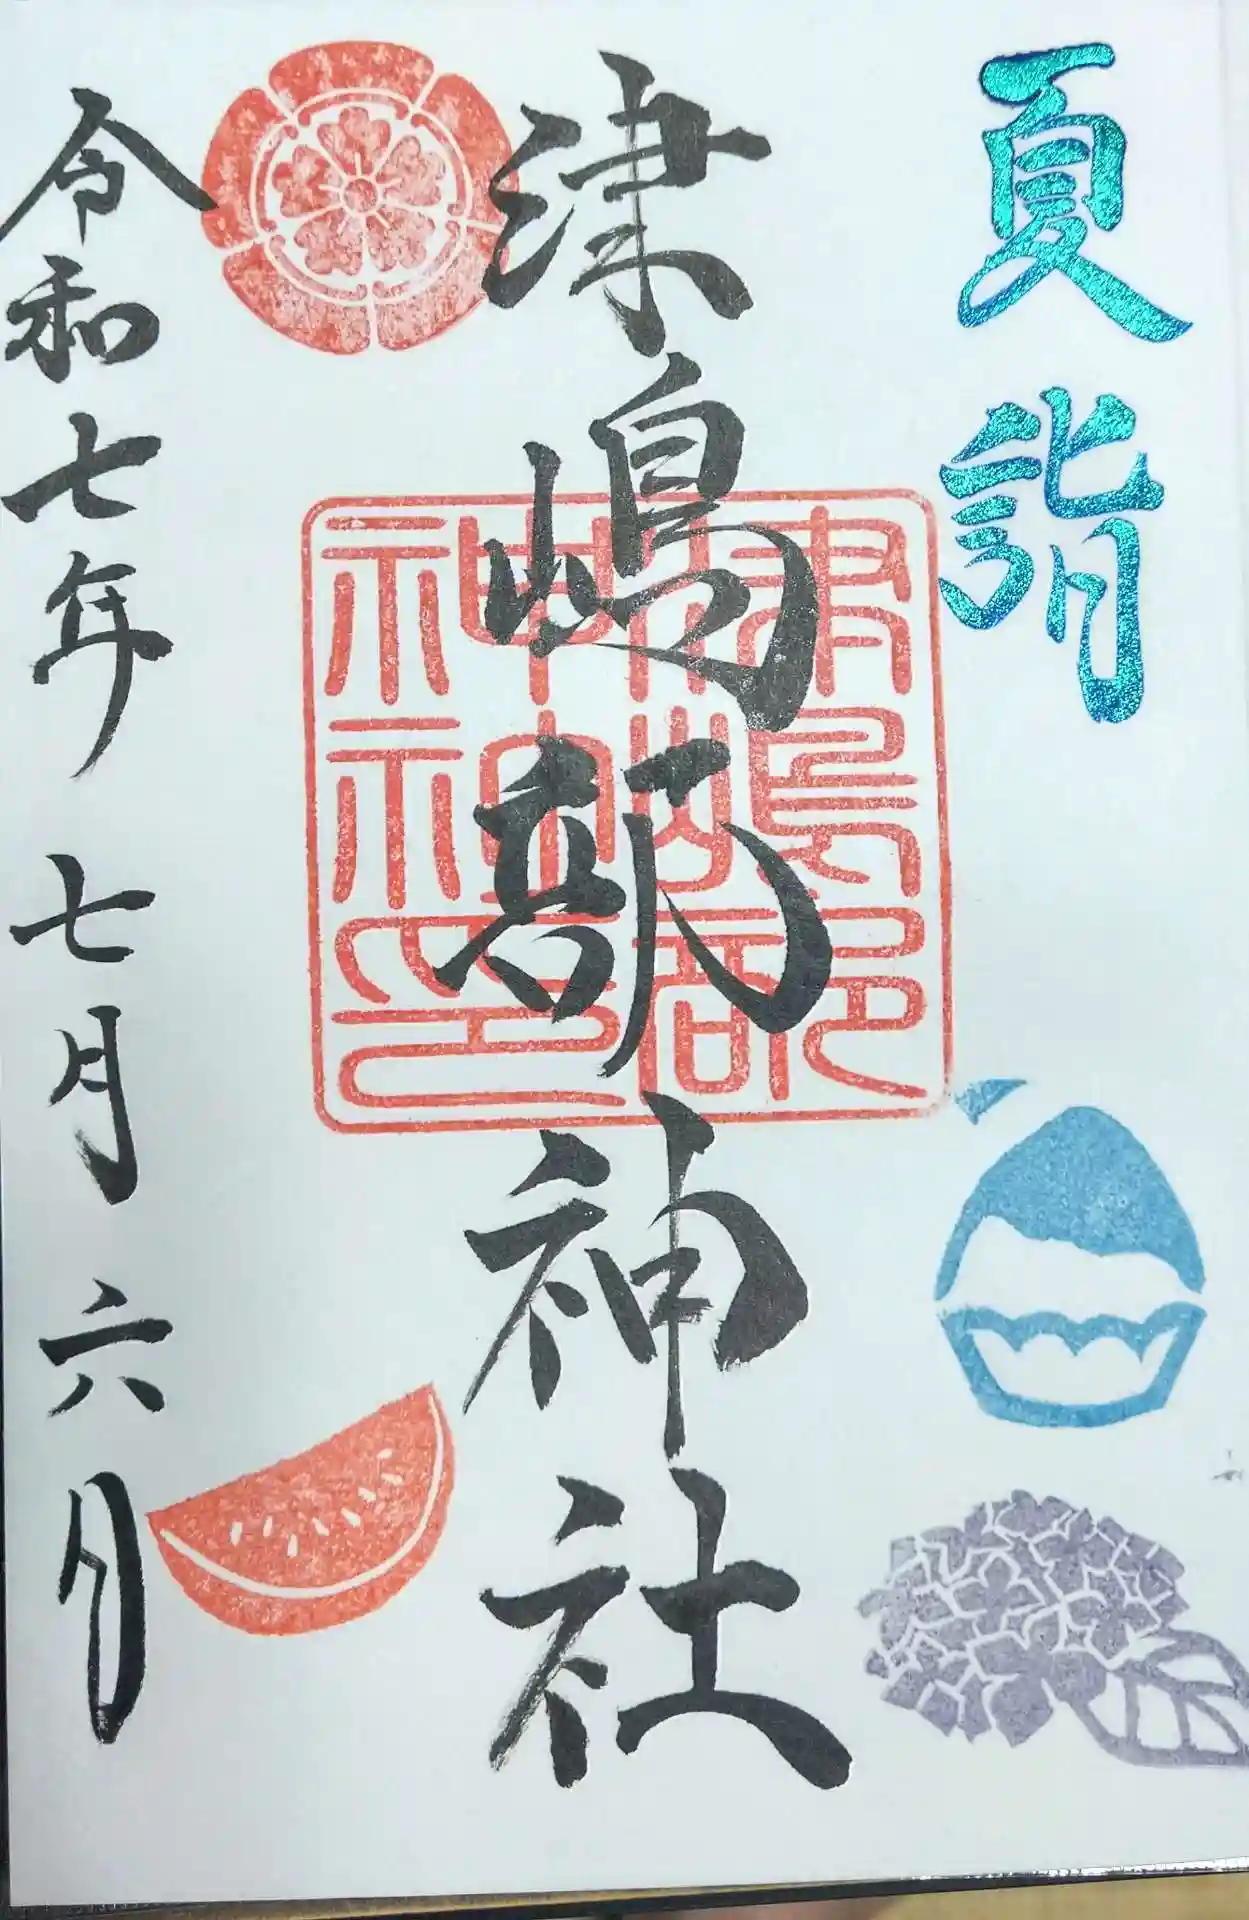 夏詣
津嶋部神社
津嶋部
神社之印
令和七年七月六日